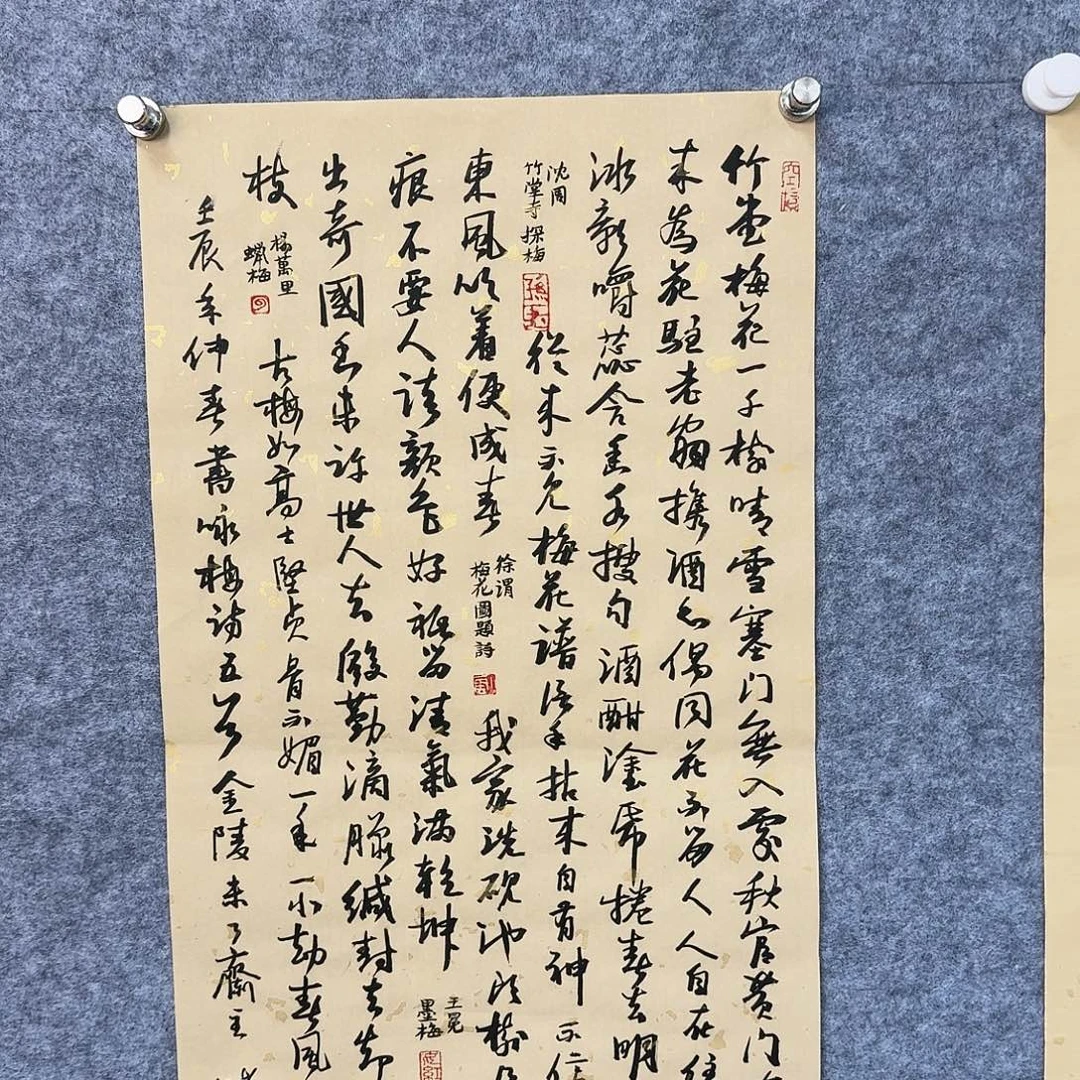 竹堂梅花一千樹晴雪塞門無入處秋官黃門
來為花駐老翁攜酒亦偶同花不留人人自在
冰影嚼蕊含香各搜句酒酣塗紙捲春去明
沈周
竹堂寺探梅
從來不見梅花譜信手拈來自有神不
東風吹著便成春
徐渭
梅花圖題詩
我家洗硯池頭樹
痕不要人誇顏色好祇留清氣滿乾坤
王冕
墨梅
出奇國香未許世人知殷勤滴臘緘封去却
枝
楊萬里
蠟梅
古梅如高士堅貞骨不媚一年一小劫春風
壬辰年仲春書咏梅詩五首金陵未了齋主